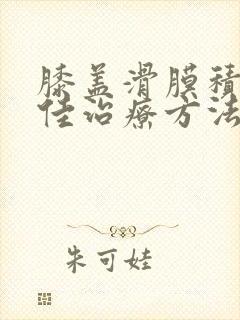 膝盖滑膜积
佳治疗方法
朱可娃